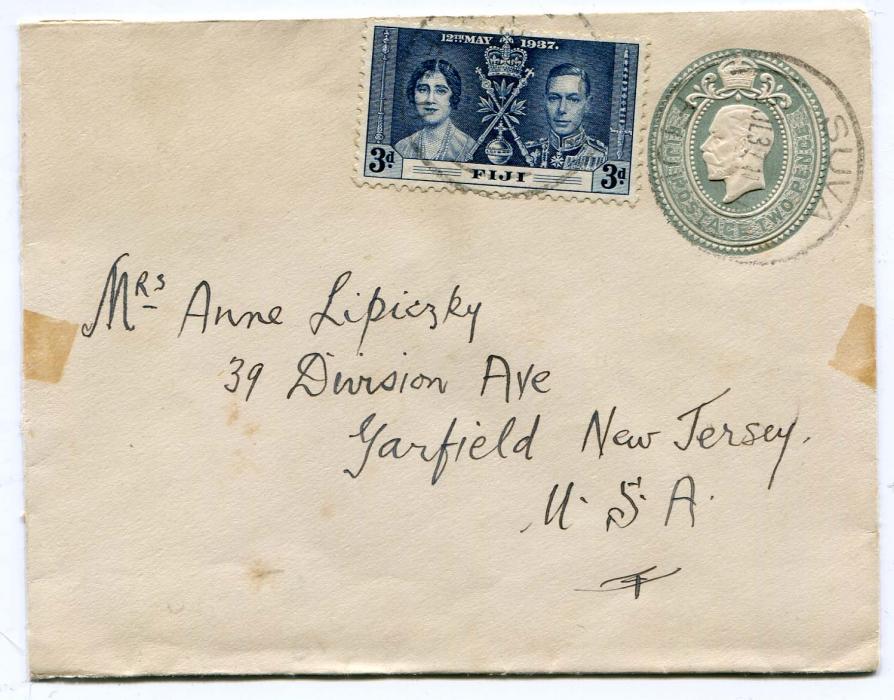 12TH MAY 1937.
3d 3d
FIJI
FIJI
POSTAGE TWO PENCE
SUVA
JL 37
Mrs Anne Lipiczky
39 Division Ave
Garfield New Jersey.
U. S. A.